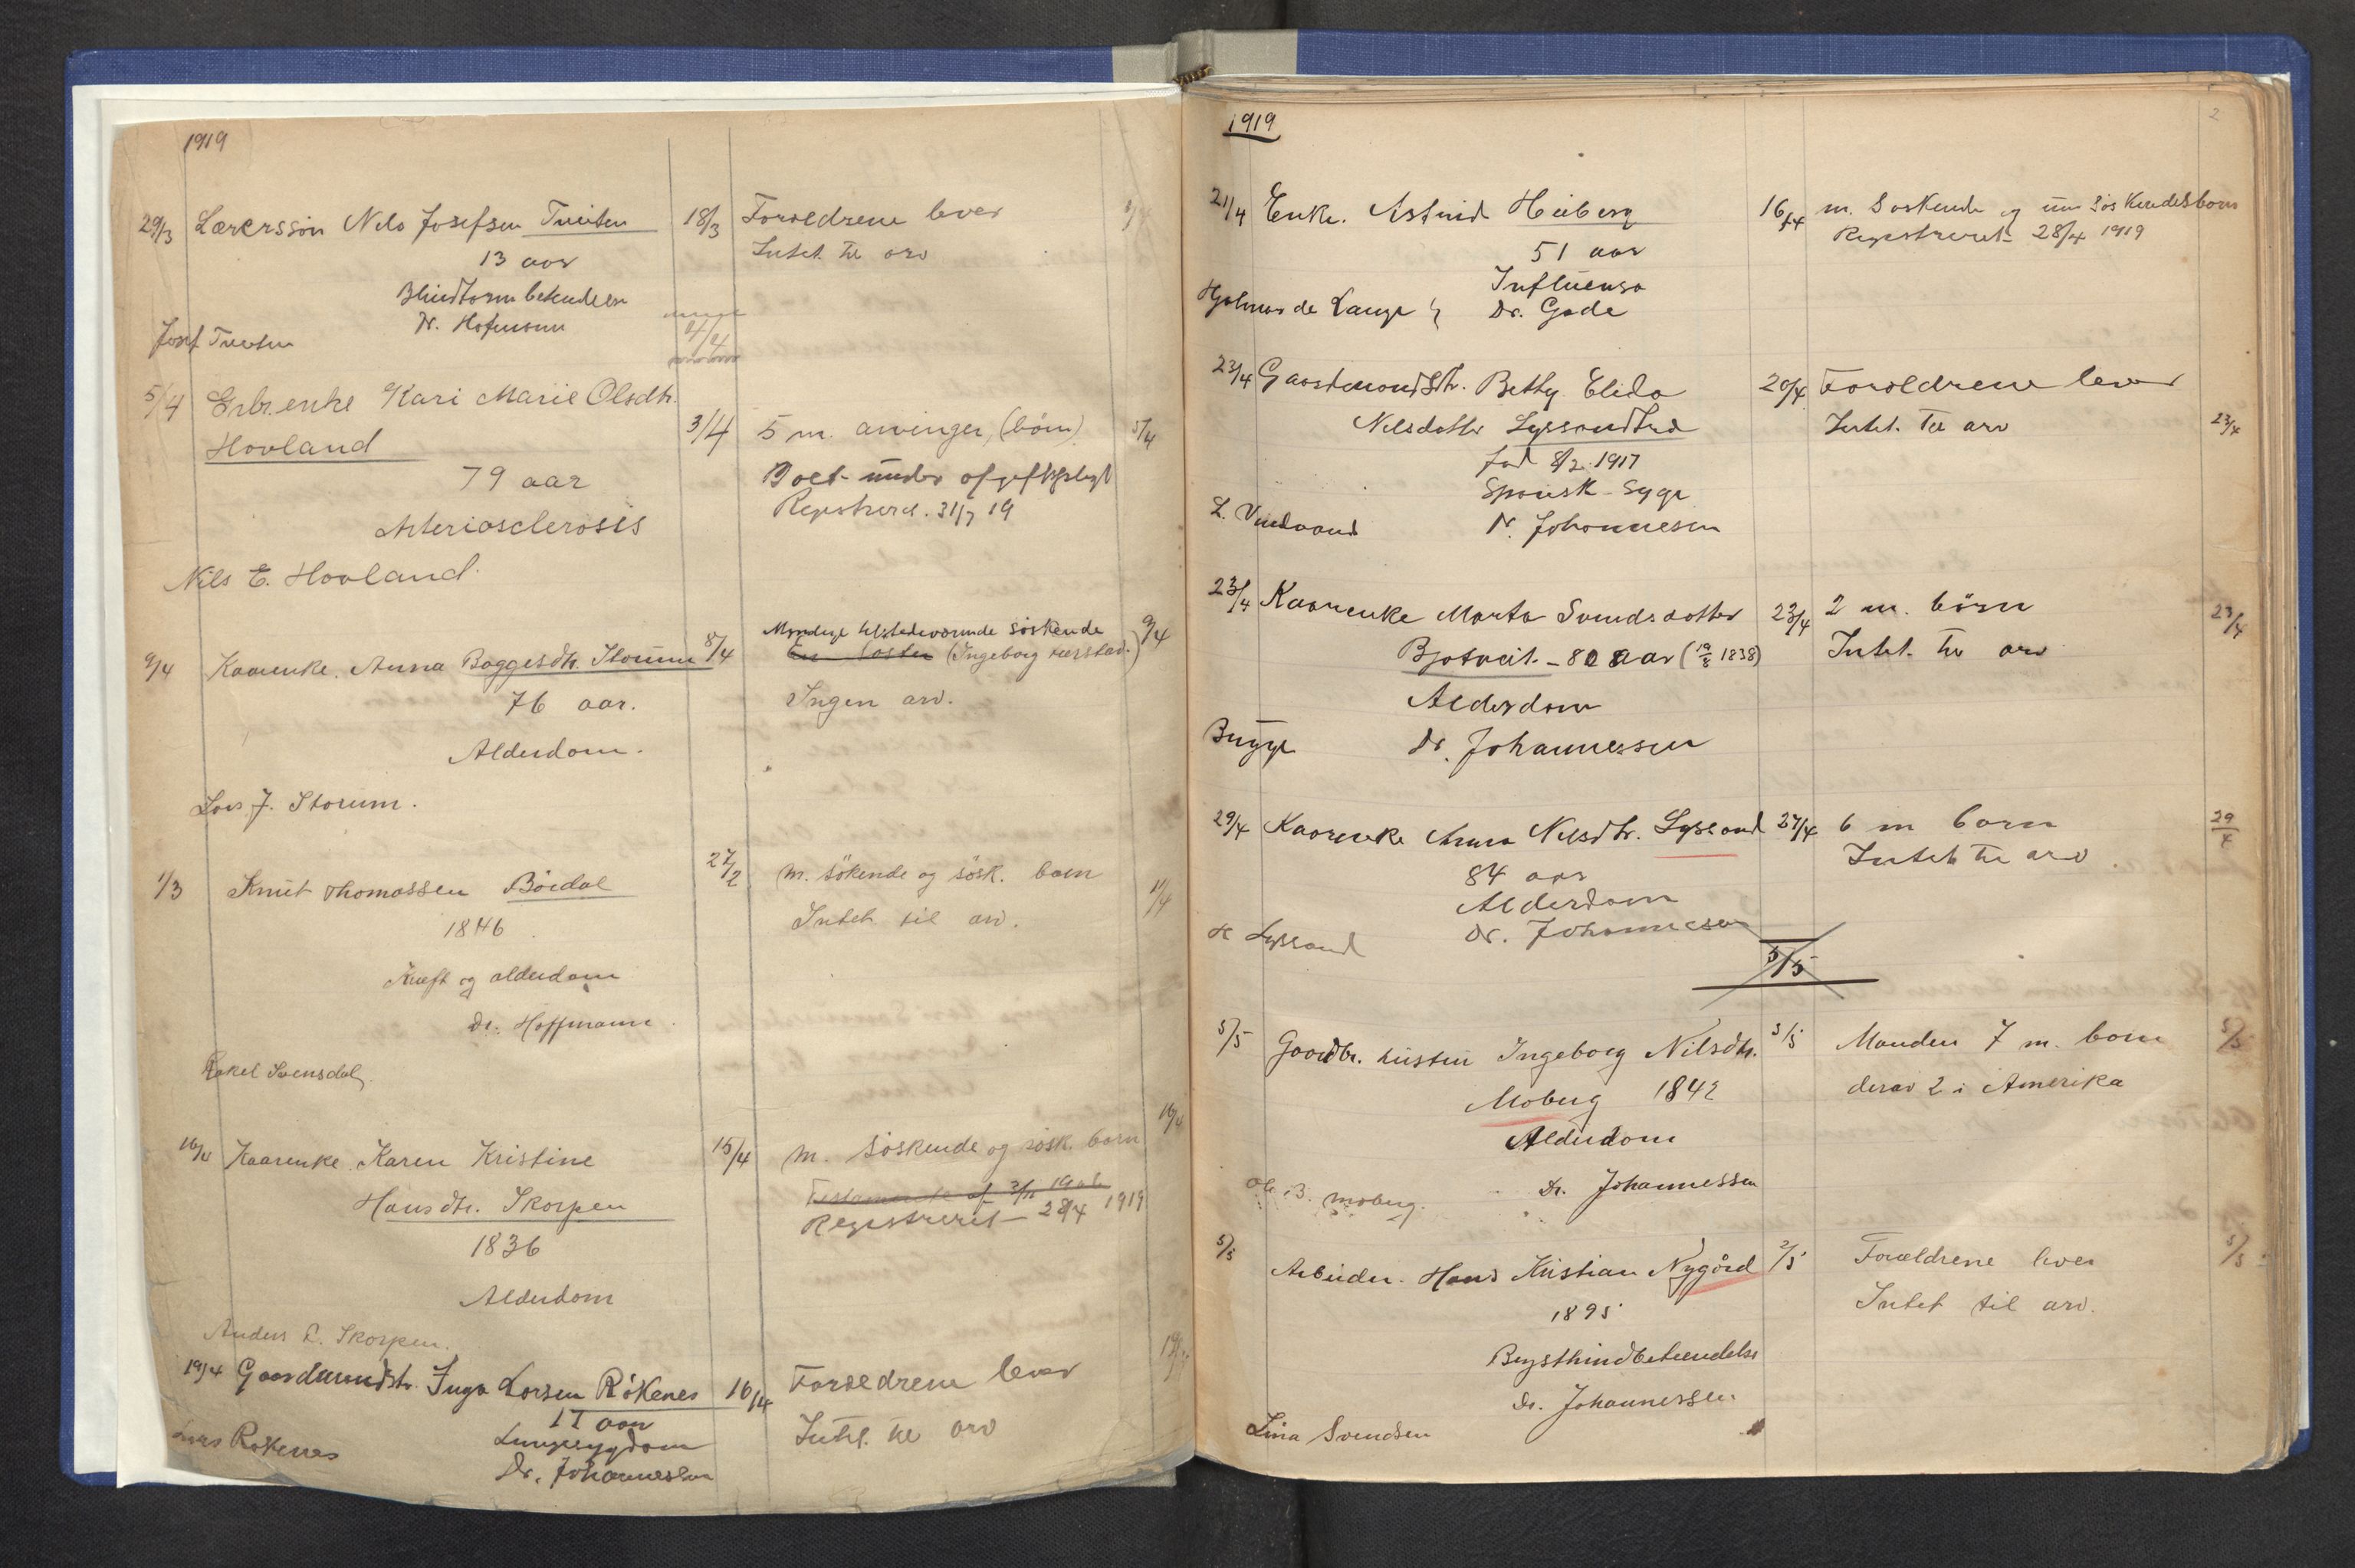 1919
29/3 Lærerssön Nils Josefsen Tveiten 18/3 Foræeldrene lever
Intet til arv
13 aar
Blindtarmbetendelse
Dr. Hofmann
Josef Tveiten
4/4
5/4 Grbr.enke Kari Marie Olsdtr. 3/4 5 m. arvinger, (börn) 5/4
Hovland
Boet under
79 aar
Registreret. 31/7 19
Arteriosclerosis
Nils E. Hovland.
9/4 Kaarenke. Anna Baggesdtr. Storum 8/4 Myndige tilstedeværende söskende 9/4
En söster (Ingeborg)
76 aar. Ingen arv.
Alderdom.
Lars J. Storum.
1/3 Knut Thomassen Böedal 27/2 m. sökende og sösk. barn 11/4
1846. Intet til arv.
Kræft og alderdom
Dr. Hoffmann.
Rakel Svensdal.
16/4 Kaarenke. Karen Kristine 15/4 m. söskende og sösk. barn 16/4
Hansdtr. Skorpen Testamente af 1906
Registreret 28/4 1919
1836
Alderdom
Anders L. Skorpen.
19/4 Gaardmandsdtr. Inga Larsen Rökenes 16/4 Foræeldrene lever
17 aar Intet til arv
Lungesygdom
Lars Rökenes
Dr. Johannessen
2
1919
21/4 Enke. Astrid Heiberg 16/4 m. Söskende og söskendesbarn
Registreret 28/4 1919
51 aar
Influensa
Hjalmar de Lange Dr. Gade
23/4 Gaardmandsdtr. Betty Elida 20/4 Foræeldrene lever
Nilsdatter Lyssandtræ Intet til arv 23/4
fød 8/2 1917
Spansk-Syge
L. Dr. Johannesen
23/4 Kaarenke Marta Svendsdatter 23/4 2 m. börn 23/4
Bjotveit - 80 aar (19/8 1838) Intet til arv
Alderdom
Bugge Dr. Johannessen
29/4 Kaarenke Anna Nilsdtr. Lyssand 27/4 6 m barn 29/4
84 aar Intet til arv.
Alderdom
H Lyssand Dr. Johannesen
5/5
5/5 Gaardbr. hustru Ingeborg Nilsdtr. 3/5 Manden 7 m. barn 5/5
Moberg 1842 derav 2 i Amerika
Alderdom
Ole B. Moberg. Dr. Johannessen
5/5 Arbeider. Hans Kristian Nygård 2/5 Forældrene lever 5/5
1895 Intet til arv.
Brysthindbetændelse
Dr. Johannessen
Lina Svendsen